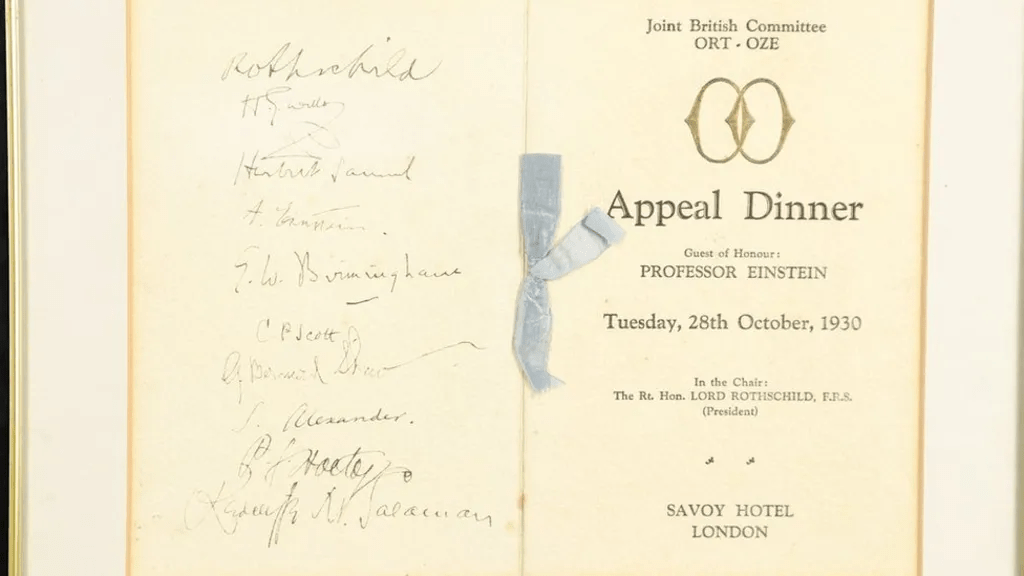 Rothschild
H. G. Wells
Herbert Samuel
A. Einstein.
E. W. Birmingham
C P Scott
G. Bernard Shaw
S. Alexander.
P J Hartog
Redcliffe N. Salaman
Joint British Committee
ORT - OZE
Appeal Dinner
Guest of Honour:
PROFESSOR EINSTEIN
Tuesday, 28th October, 1930
In the Chair:
The Rt. Hon. LORD ROTHSCHILD, F.R.S.
(President)
SAVOY HOTEL
LONDON